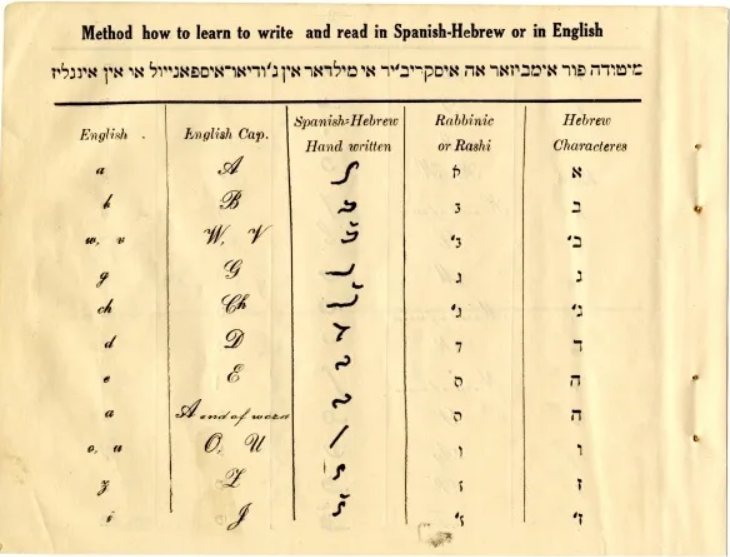 Method how to learn to write and read in Spanish-Hebrew or in English
מיטודה פור אימביזאר אה איסקריב'יר אי מילדאר אין ג'ודיאו־איספאנייול או אין אינגליז
English . English Cap. Spanish-Hebrew Hand written Rabbinic or Rashi Hebrew Characteres
a A א א
b B ב ב
w, v W, V ב' ב'
g G ג ג
ch Ch ג' ג'
d D ד ד
e E ה ה
a A end of word ה ה
o, u O, U ו ו
z Z ז ז
i J ז' ז'